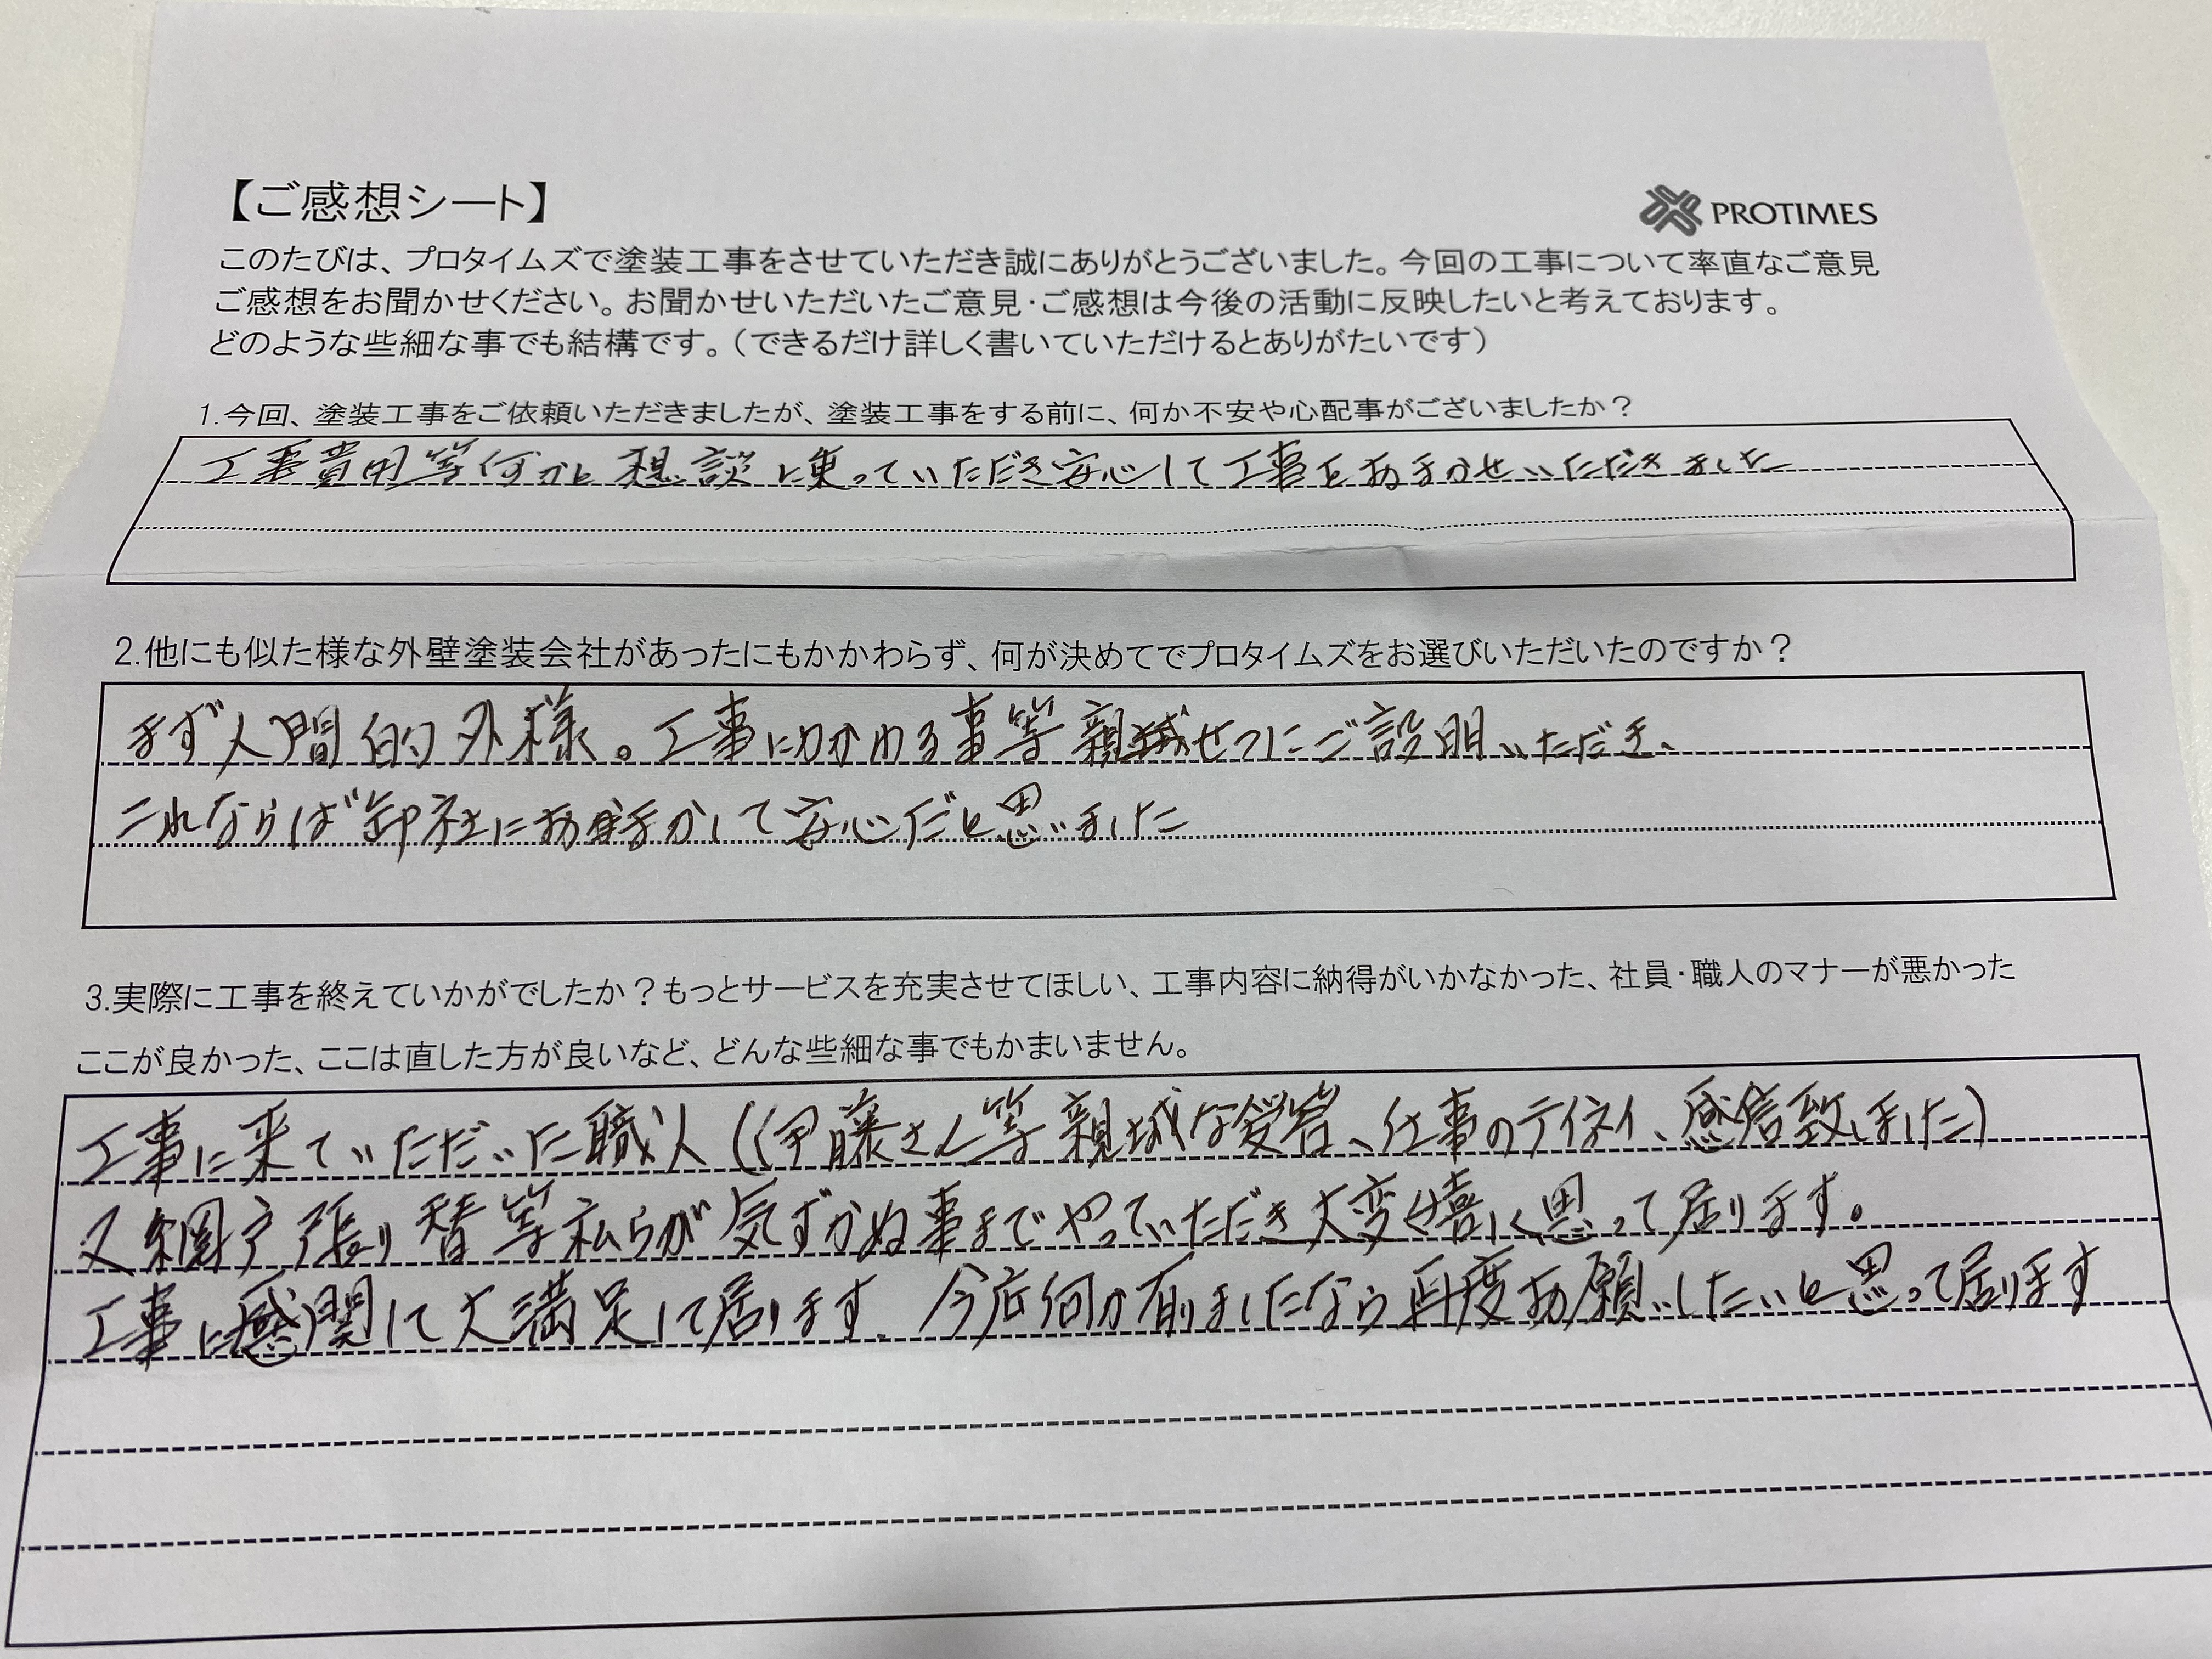 【ご感想シート】
PROTIMES
このたびは、プロタイムズで塗装工事をさせていただき誠にありがとうございました。今回の工事について率直なご意見
ご感想をお聞かせください。お聞かせいただいたご意見・ご感想は今後の活動に反映したいと考えております。
どのような些細な事でも結構です。（できるだけ詳しく書いていただけるとありがたいです）
1.今回、塗装工事をご依頼いただきましたが、塗装工事をする前に、何か不安や心配事がございましたか？
工事費用等何かと想談に乗っていただき安心して工事をおまかせいただきました
2.他にも似た様な外壁塗装会社があったにもかかわらず、何が決めてでプロタイムズをお選びいただいたのですか？
まず人間的外様。工事にかかわる事等親城せつにご説明いただき、
これならば御社におまかして安心だと思いました
3.実際に工事を終えていかがでしたか？もっとサービスを充実させてほしい、工事内容に納得がいかなかった、社員・職人のマナーが悪かった
ここが良かった、ここは直した方が良いなど、どんな些細な事でもかまいません。
工事に来ていただいた職人（伊藤さん等親城な、仕事のテイネイ、感信致しました）
又網戸張り替等私らが気ずかぬ事までやっていただき大変嬉しく思って居ります。
工事に関して大満足して居ります。今后何か有りましたなら再度お願いしたいと思って居ります